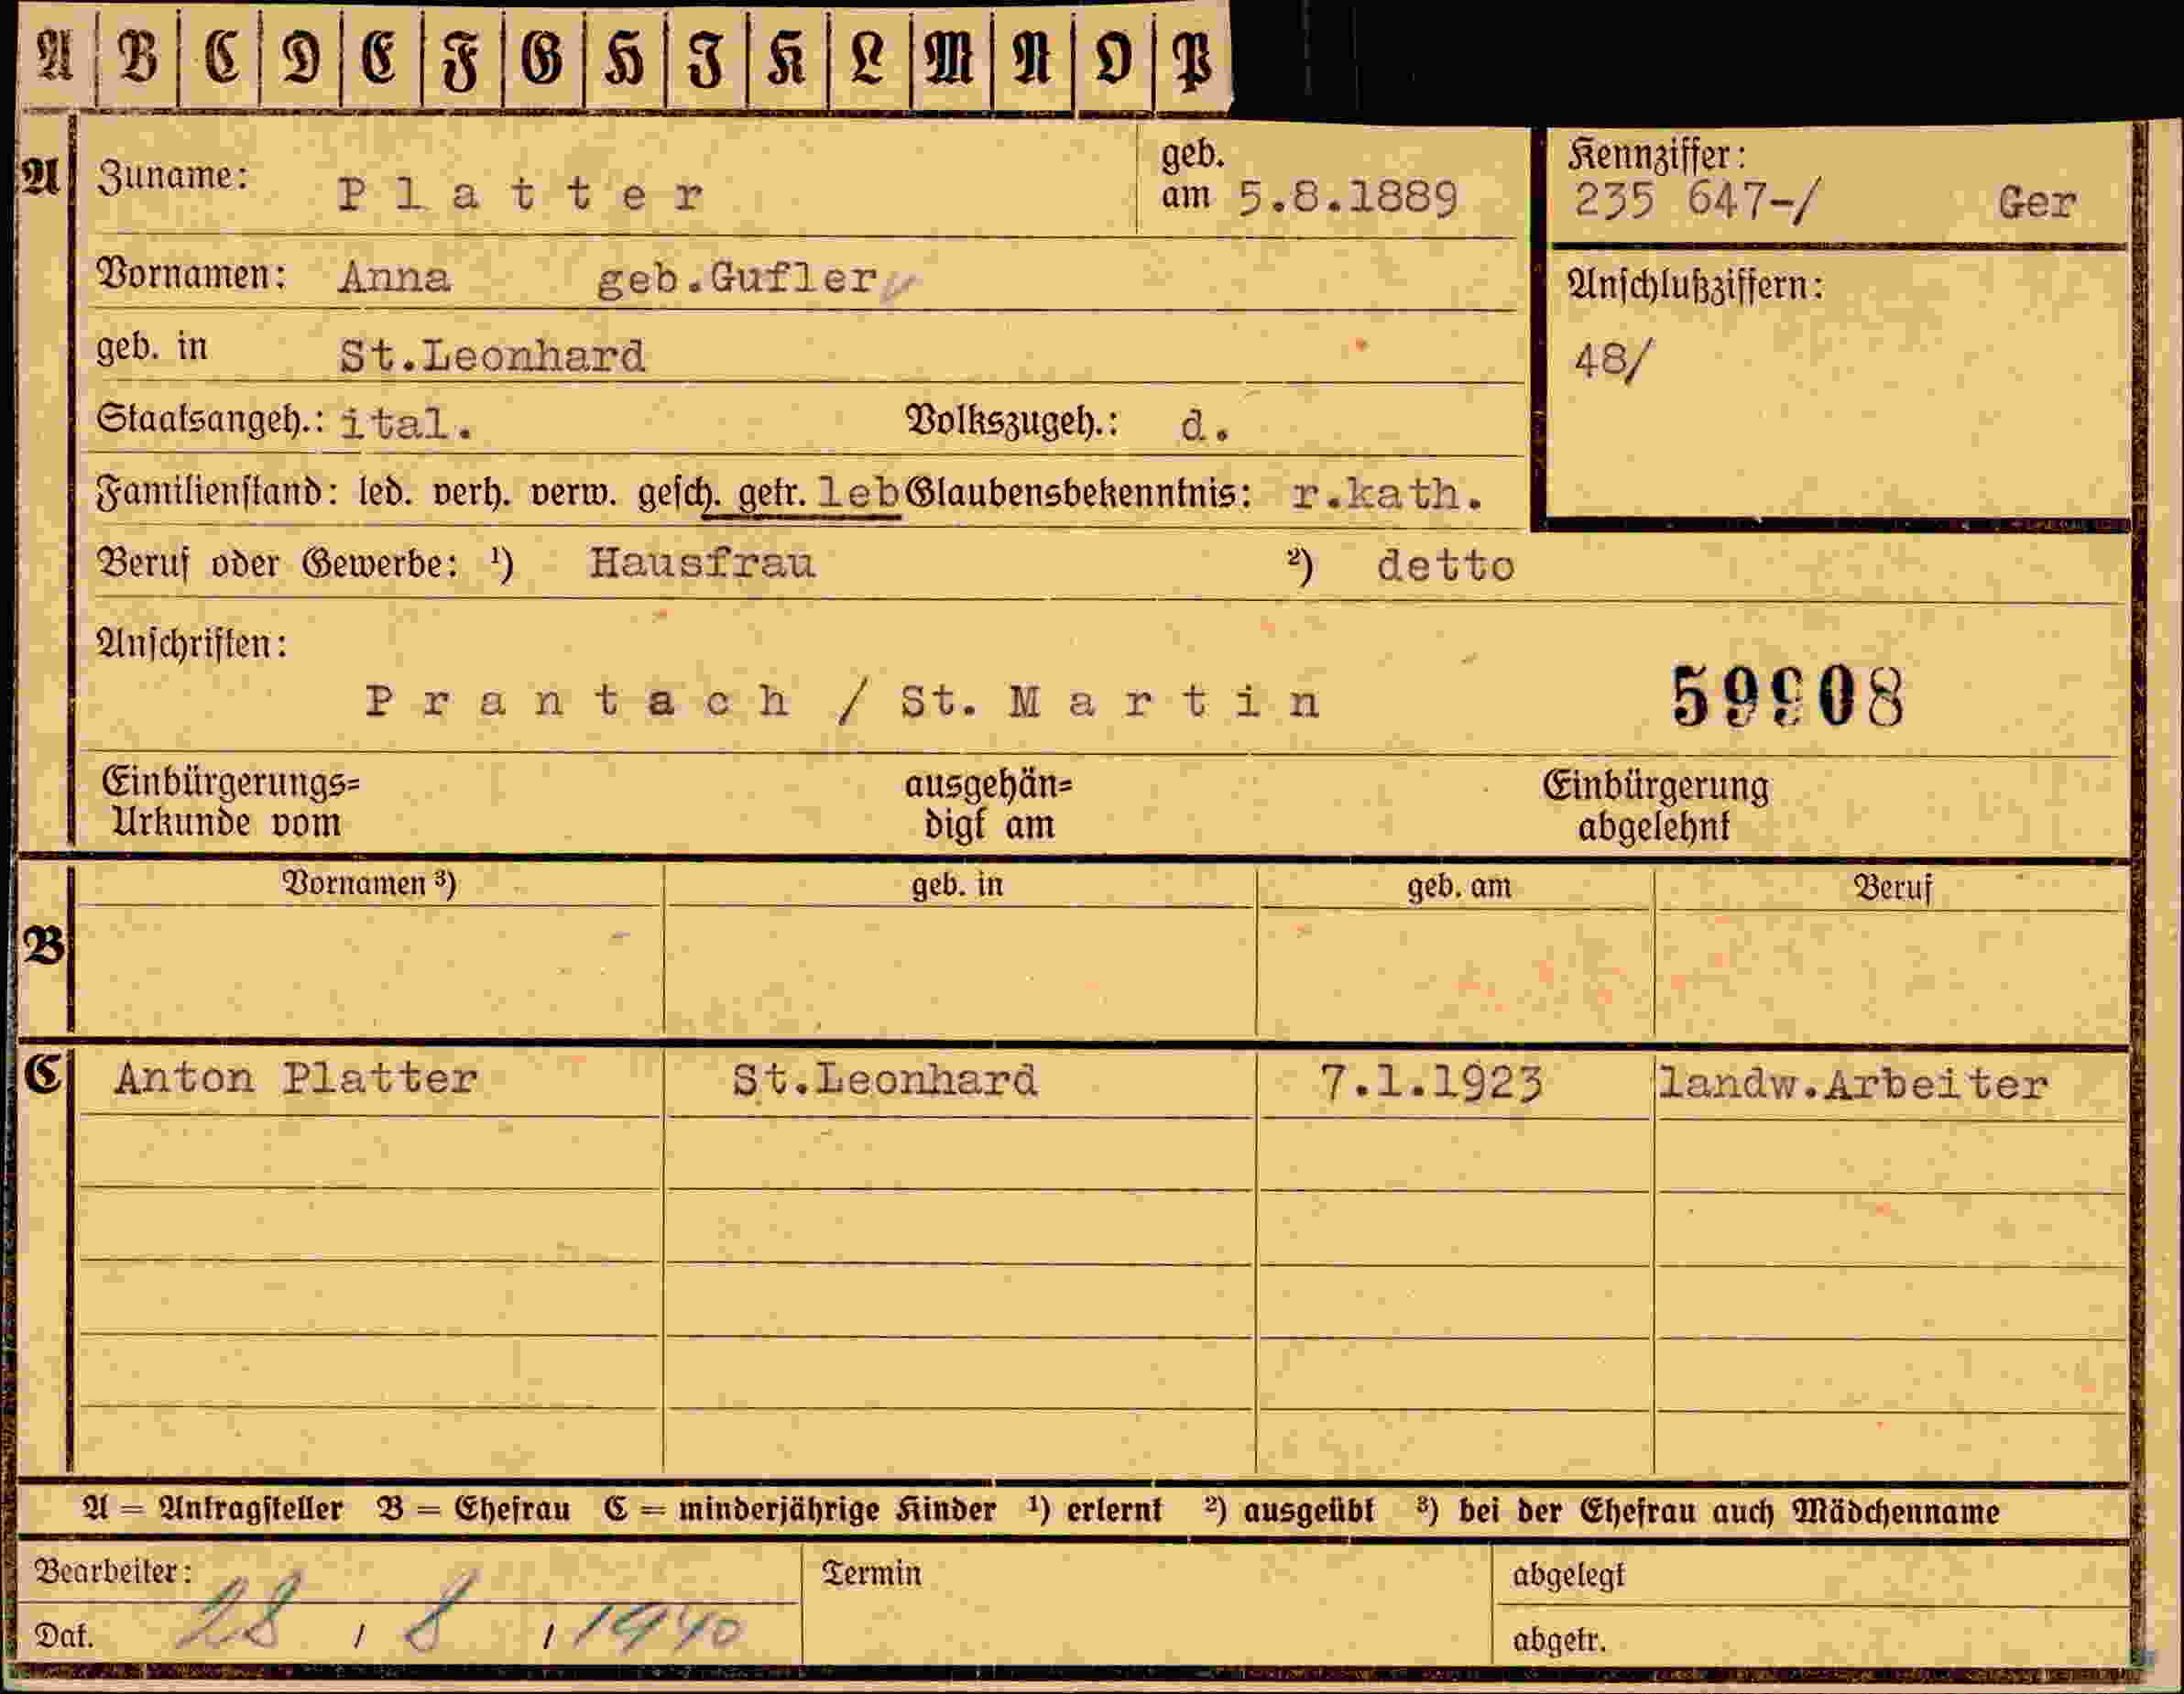 A B C D E F G H I K L M N O P
A Zuname: Platter geb. am 5.8.1889 Kennziffer: 235 647-/ Ger
Vornamen: Anna geb.Gufler Anschlußziffern:
geb. in St.Leonhard 48/
Staatsangeh.: ital. Volkszugeh.: d.
Familienstand: led. verh. verw. gesch. getr. leb Glaubensbekenntnis: r.kath.
Beruf oder Gewerbe: ¹) Hausfrau ²) detto
Anschriften:
Prantach / St. Martin 59908
Einbürgerungs= ausgehän= Einbürgerung
Urkunde vom digt am abgelehnt
Vornamen ³) geb. in geb. am Beruf
B
C Anton Platter St.Leonhard 7.1.1923 landw.Arbeiter
A = Antragsteller B = Ehefrau C = minderjährige Kinder ¹) erlernt ²) ausgeübt ³) bei der Ehefrau auch Mädchenname
Bearbeiter: Termin abgelegt
Dat. 28 / 8 / 1940 abgetr.